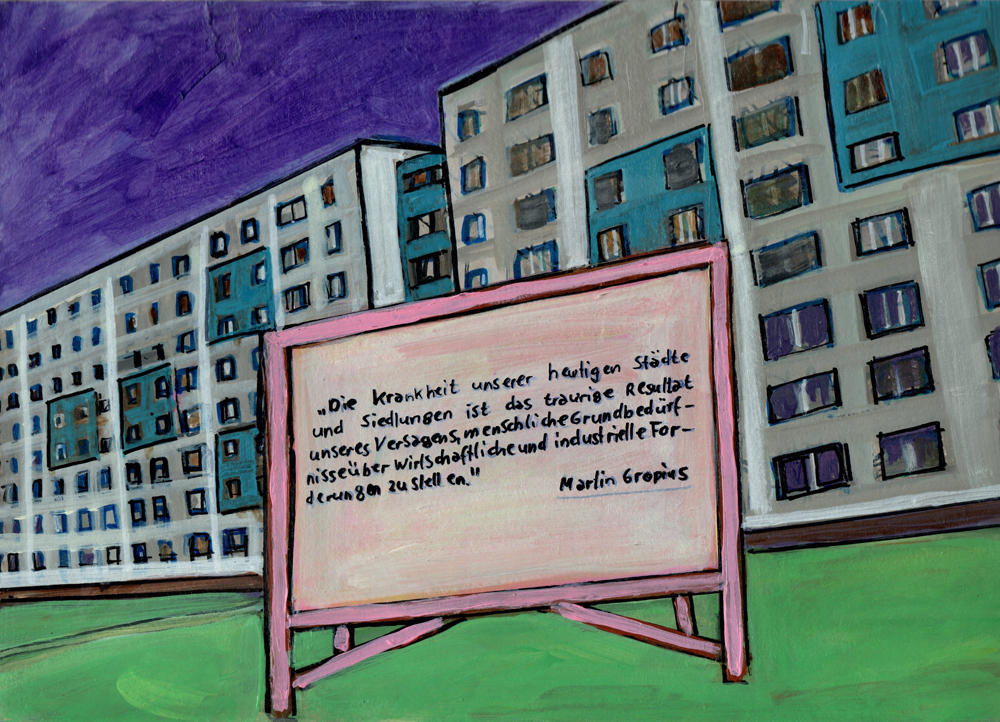 „Die Krankheit unserer heutigen Städte
und Siedlungen ist das traurige Resultat
unseres Versagens, menschliche Grundbedürf-
nisse über wirtschaftliche und industrielle For-
derungen zu stellen."
Martin Gropius